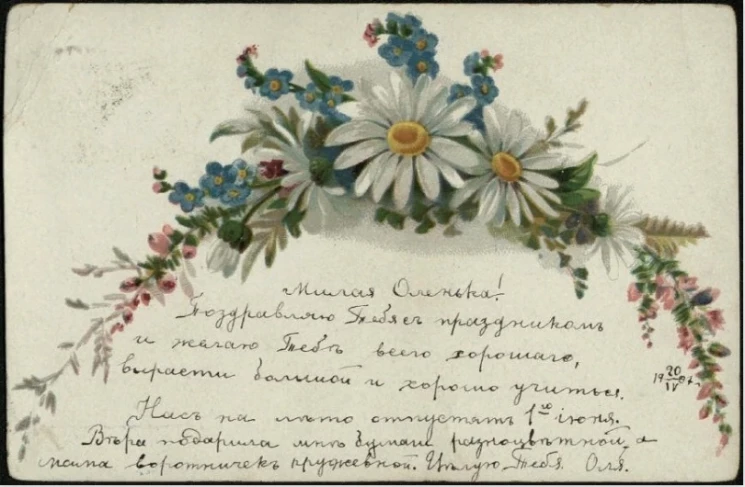 Милая Оленька!
Поздравляю Тебя съ праздникомъ
и желаю Тебѣ всего хорошаго,
вырасти большой и хорошо учиться.
19 20/IV 07 г.
Насъ на лѣто отпустятъ 1го іюня.
Вѣра подарила мнѣ бумаги разноцвѣтной, а
мама воротничекъ кружевной. Цѣлую Тебя. Оля.